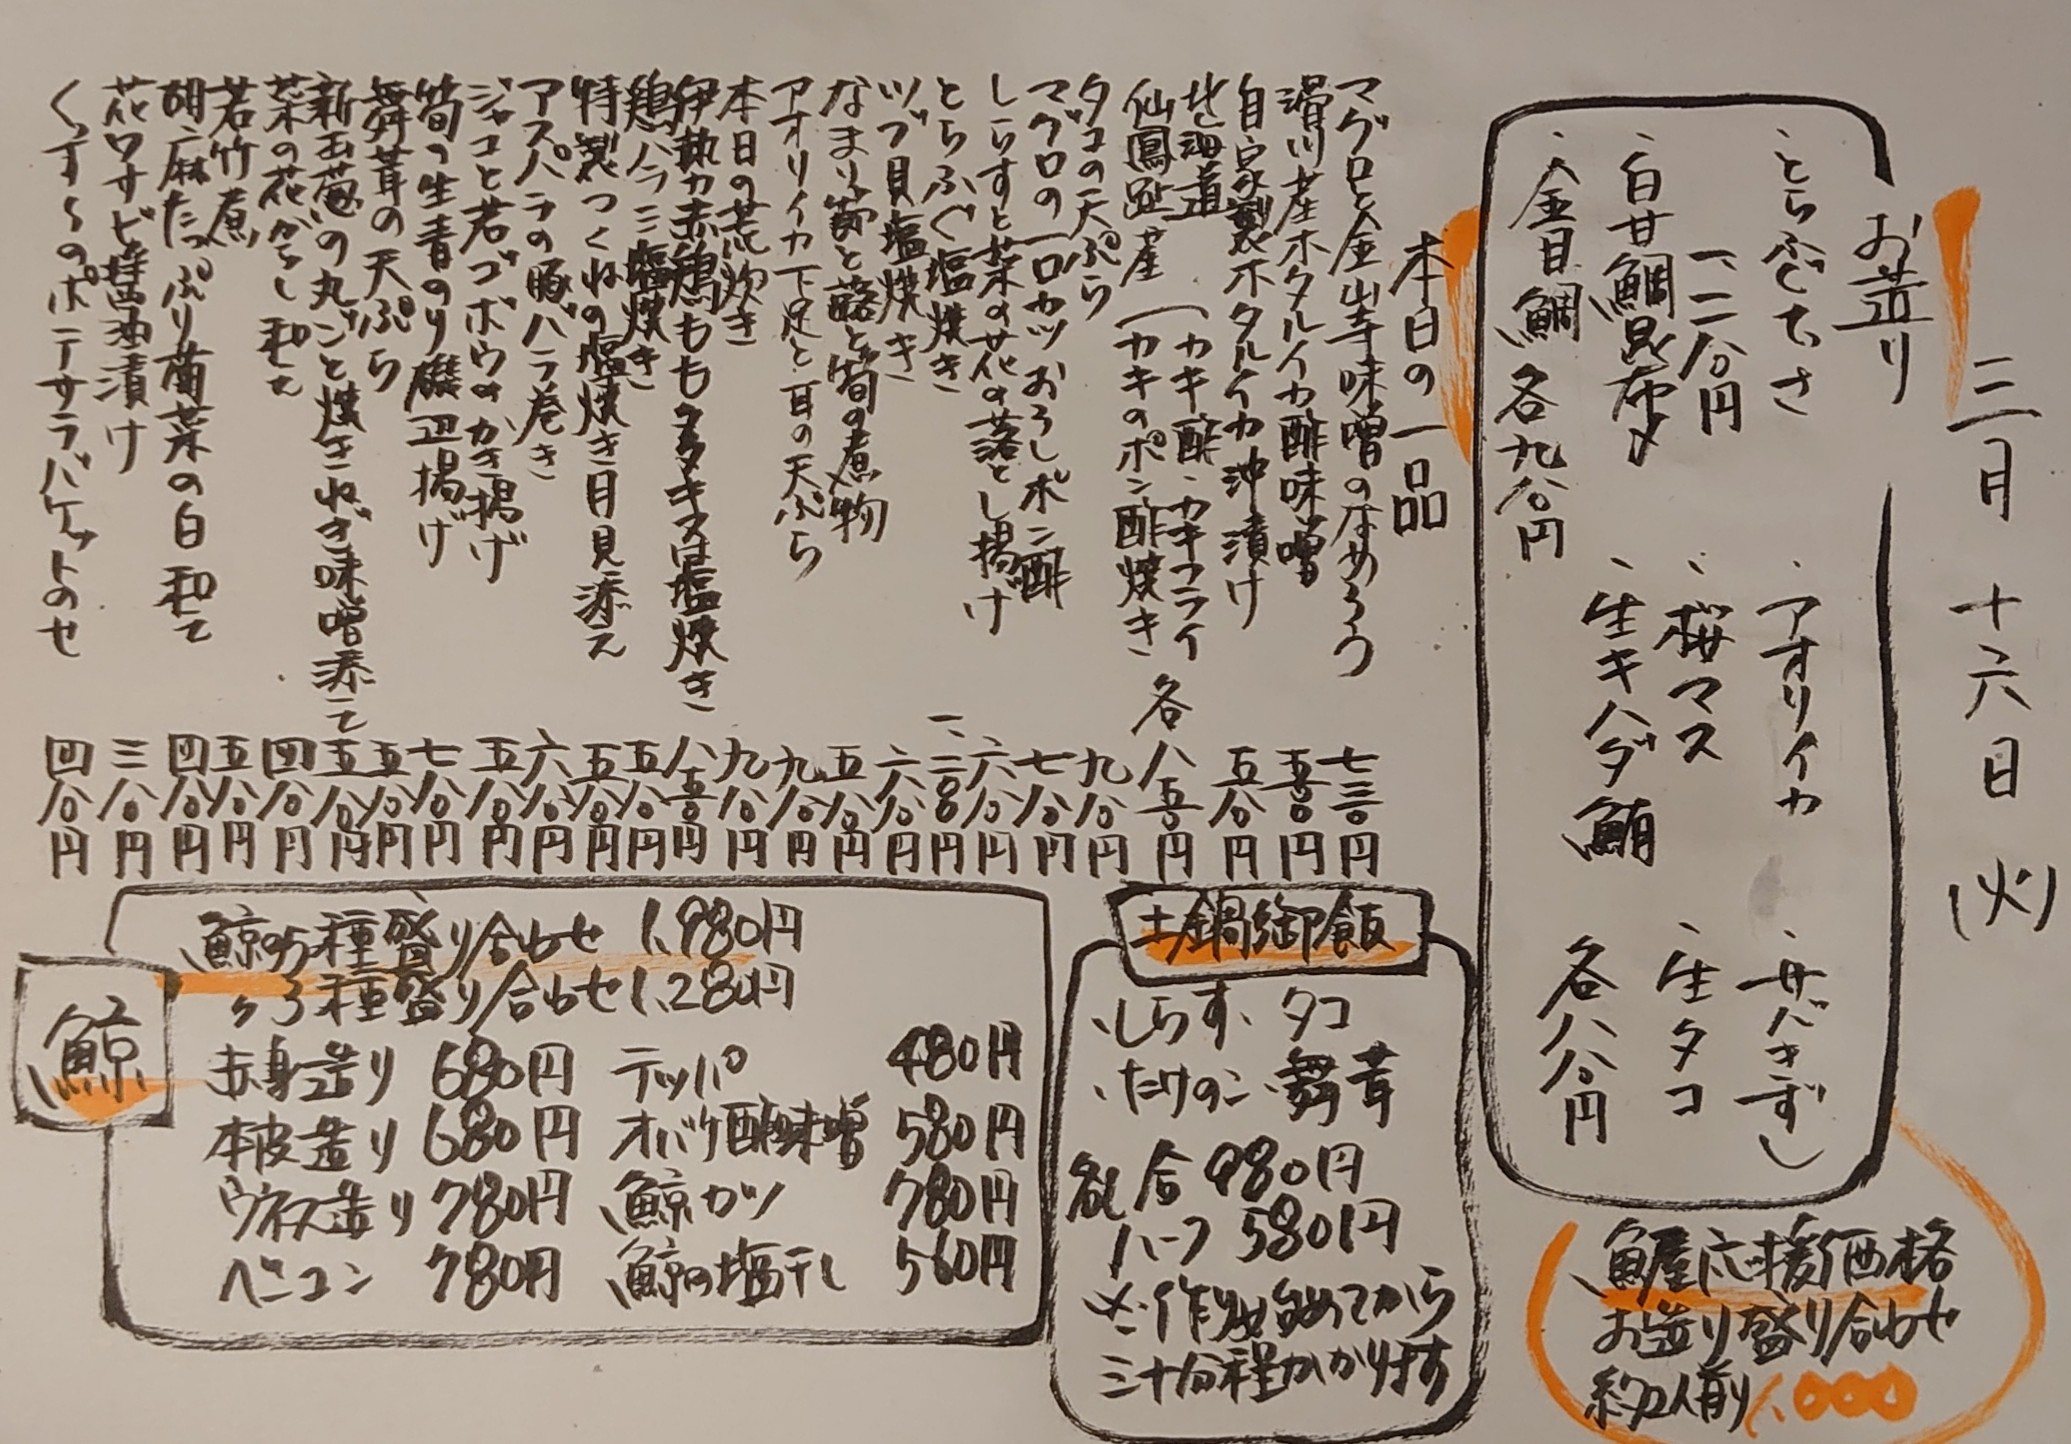 三月十六日(火)
お造り
、とらふぐちさ
一、二八〇円
、白甘鯛昆布〆
、金目鯛 各九八〇円
、アオリイカ
、桜マス
、生キハダ鮪
、サバきずし
、生タコ
各八八〇円
魚屋応援価格
お造り盛り合わせ
約2人前 1,000
本日の一品
マグロと金山寺味噌のなめろう 七三〇円
滑川産ホタルイカ酢味噌 五五〇円
自家製ホタルイカ沖漬け 五八〇円
北海道
仙鳳趾産
(カキ酢、カキフライ
(カキのポン酢焼き 各八五〇円
タコの天ぷら 九八〇円
マグロの一口カツおろしポン酢 七八〇円
しらすと菜の花の落とし揚げ 六八〇円
とらふぐ塩焼き 一、二〇〇円
ツブ貝塩焼き 六八〇円
なまり節と蕗と筍の煮物 五八〇円
アオリイカ下足と耳の天ぷら 九八〇円
本日の荒炊き 九八〇円
伊勢力赤鶏ももタタキ又は塩焼き 八五〇円
鶏ハラミ塩焼き 五八〇円
特製つくねの塩焼き目見添え 五八〇円
アスパラの豚バラ巻き 六八〇円
ジャコと若ゴボウのかき揚げ 五八〇円
筍の生青のり磯辺揚げ 七八〇円
舞茸の天ぷら 五八〇円
新玉葱の丸ごと焼きねぎ味噌添えて 五八〇円
菜の花からし和え 四八〇円
若竹煮 五八〇円
胡麻たっぷり菊菜の白和え 四八〇円
花ワサビ醤油漬け 三八〇円
くずしのポテサラバケットのせ 四八〇円
土鍋御飯
、しらす、タコ
、たけのこ、舞茸
各一合 980円
ハーフ 580円
※作り始めてから
三十分程かかります
鯨
鯨の5種盛り合わせ 1,980円
〃3種盛り合わせ 1,280円
赤身造り 680円 テッパ 480円
本皮造り 680円 オバケ酢味噌 580円
ウネス造り 780円 鯨カツ 780円
ベーコン 780円 鯨の塩干し 560円